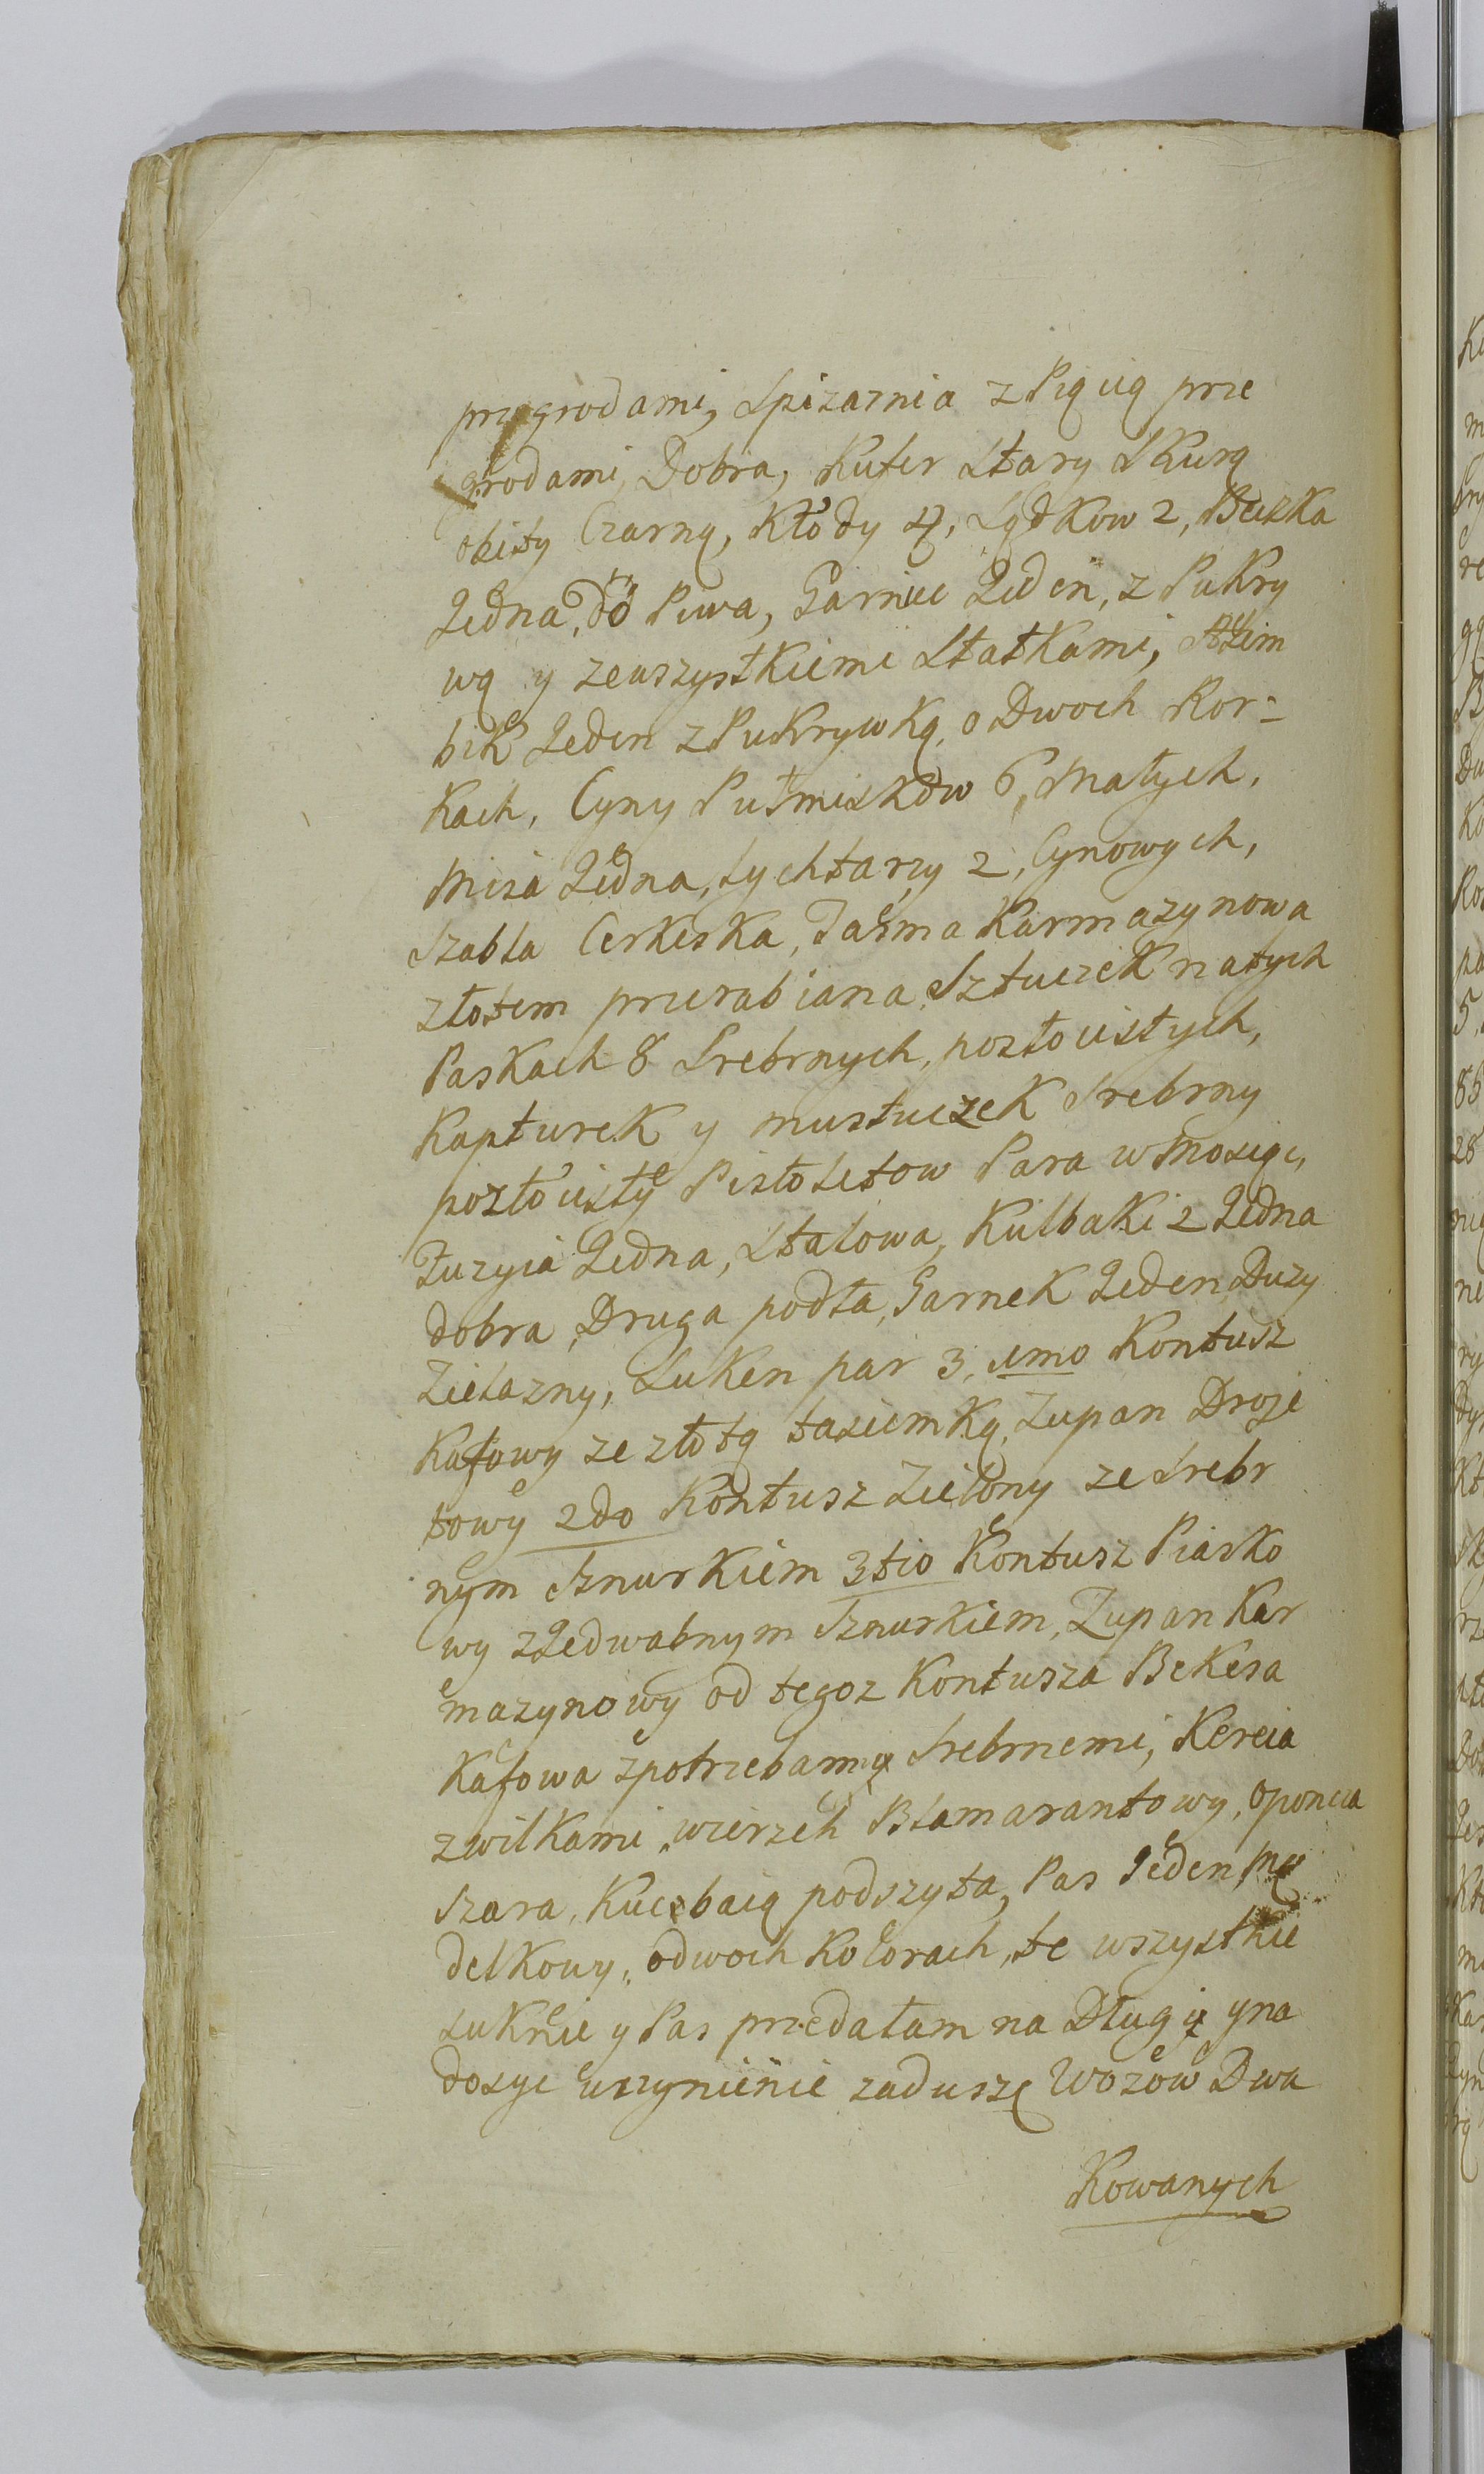 przegrodami, Spizarnia z Pięcią prze
grodami, Dobra, Kufer Stary Skurą
obity Czarną, Kłody 4, Sądkow 2, Beczka
Jedna, do Piwa, Garniec Jeden, z Pukry
wą y zewszystkiemi Statkami, Alem
bik Jeden z Pukrywką, o Dwoch Ror=
kach, Cyny Pułmisków 6, Małych,
Misa Jedna, Lychtarzy 2, Cynowych,
Szabla Cerkieska, Taśma Karmazynowa
złotem przerabiana, Sztuczek na tych
Paskach 8 Srebrnych, pozłocistych,
Kapturek y musztuczek Srebrny
pozłocisty Pistoletow Para w Mosiąc,
Fuzyia Jedna, Stalowa, Kulbaki 2 Jedna
dobra, Druga podła, Garnek Jeden Duzy
Zielazny, Suken par 3, 1mo Kontusz
Kafowy ze złotą tasiemką, Zupan Droje
towy 2do Kontusz Zielony ze Srebr
nym Sznurkiem 3tio Kontusz Piasko
wy z Jedwabnym Sznurkiem, Zupan Kar
mazynowy od tegoz Kontusza Bekesa
Kafowa zpotrzebamy Srebrnemi, Kereia
z wilkami, wierzch Blamarantowy, Oponcza
Szara, Kuczbaią podszyta, Pas Jeden,
delkowy, odwoch Kolorach, te wszystkie
suknie y Pas przedałam na Długi y na
dosyc uczynienie zaduszę Wozow Dwa
Kowanych